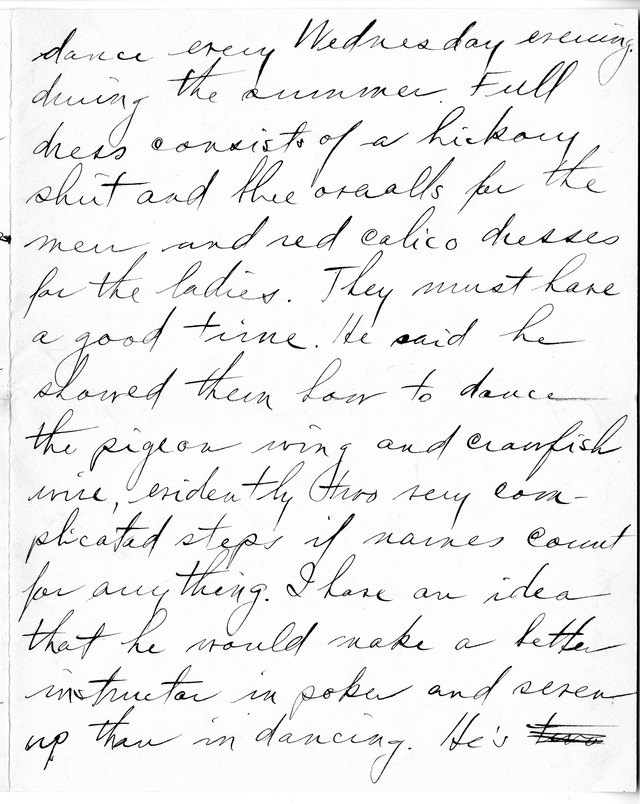 dance every Wednesday evening.
during the summer. Full
dress consists of a hickory
shirt and blue overalls for the
men and red calico dresses
for the ladies. They must have
a good time. He said he
showed them how to dance
the pigeon wing and crawfish
wise, evidently two very com-
plicated steps if names count
for anything. I have an idea
that he would make a better
instructor in poker and seven
up than in dancing. He's two